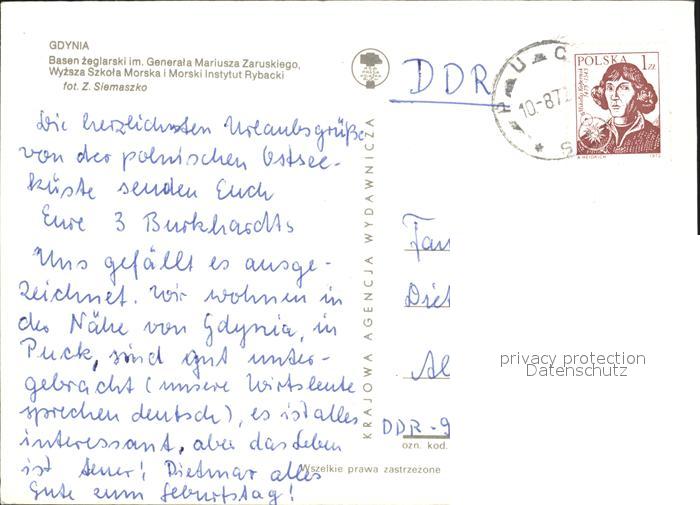 GDYNIA
Basen żeglarski im. Generała Mariusza Zaruskiego,
Wyższa Szkoła Morska i Morski Instytut Rybacki
fot. Z. Siemaszko
DDR
POLSKA 1 ZŁ
10-8.7
A. HEIDRICH 1972
Die herzlichsten Urlaubsgrüße
von der polnischen Ostsee-
küste senden Euch
Eure 3 Burkhardts
Uns gefällt es ausge-
zeichnet. Wir wohnen in
der Nähe von Gdynia, in
Puck, sind gut unter-
gebracht (unsere Wirtsleute
sprechen deutsch), es ist alles
interessant, aber das Leben
ist teuer! Dietmar alles
Gute zum Geburtstag!
KRAJOWA AGENCJA WYDAWNICZA
Fam
Diet
Al
DDR-9
ozn. kod.
Wszelkie prawa zastrzeżone
privacy protection
Datenschutz